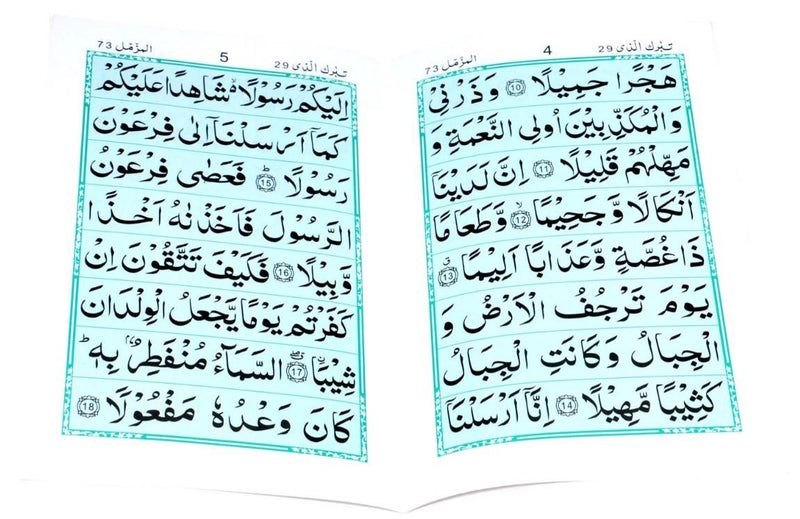 تبٰرك الّذى 29
4
المزّمّل 73
هَجْرًا جَمِيْلًا ﴿10﴾ وَذَرْنِىْ
وَالْمُكَذِّبِيْنَ اُولِى النَّعْمَةِ وَ
مَهِّلْهُمْ قَلِيْلًا ﴿11﴾ اِنَّ لَدَيْنَاۤ
اَنْكَالًا وَّجَحِيْمًا ۙ﴿12﴾ وَّطَعَامًا
ذَا غُصَّةٍ وَّعَذَابًا اَلِيْمًا ﴿13﴾ ق
يَوْمَ تَرْجُفُ الْاَرْضُ وَ
الْجِبَالُ وَكَانَتِ الْجِبَالُ
كَثِيْبًا مَّهِيْلًا ﴿14﴾ اِنَّاۤ اَرْسَلْنَاۤ
تبٰرك الّذى 29
5
المزّمّل 73
اِلَيْكُمْ رَسُوْلًا ۙ شَاهِدًا عَلَيْكُمْ
كَمَاۤ اَرْسَلْنَاۤ اِلٰى فِرْعَوْنَ
رَسُوْلًا ؕ﴿15﴾ فَعَصٰى فِرْعَوْنُ
الرَّسُوْلَ فَاَخَذْنٰهُ اَخْذًا
وَّبِيْلًا ﴿16﴾ فَكَيْفَ تَتَّقُوْنَ اِنْ
كَفَرْتُمْ يَوْمًا يَّجْعَلُ الْوِلْدَانَ
شِيْبَا ﴿17﴾ اۨلسَّمَآءُ مُنْفَطِرٌۢ بِهٖ ؕ
كَانَ وَعْدُهٗ مَفْعُوْلًا ﴿18﴾